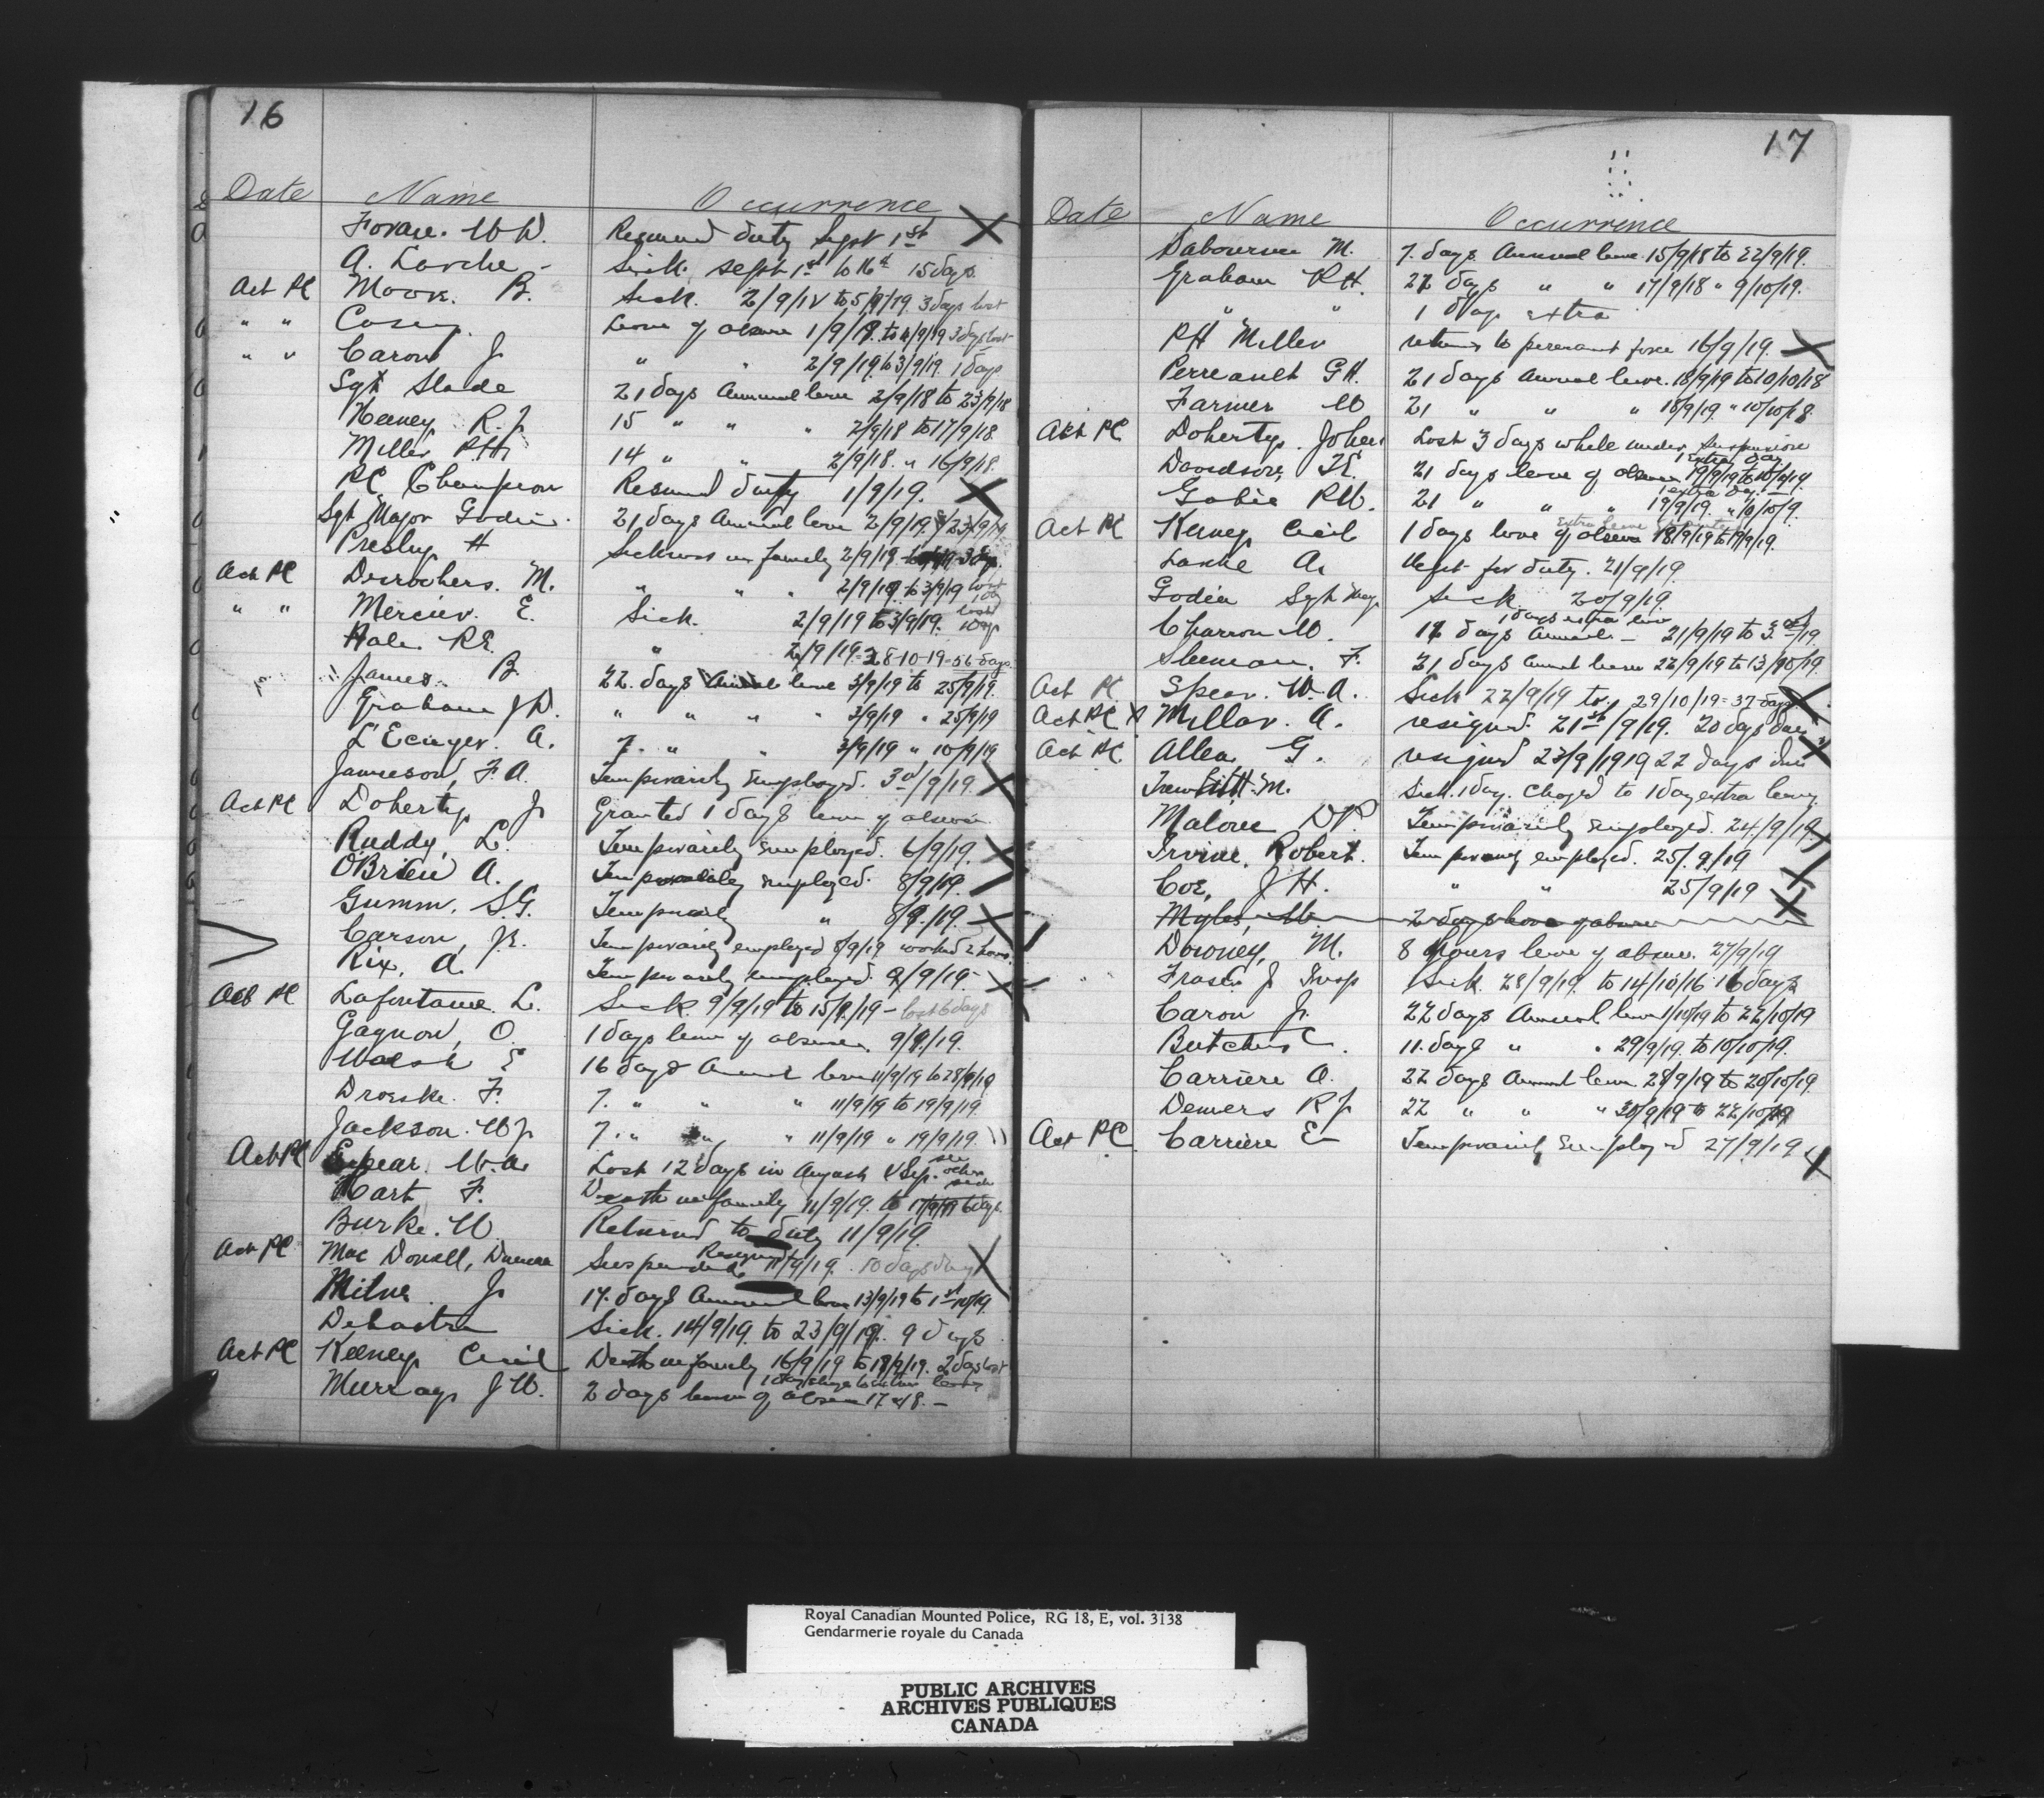 16
Date Name Occurrence
W D. Resumed duty Sept 1st X
A. Sick. Sept 1st to 16th 15 days
Act PC Moore. B. Sick. 2/9/19 to 5/9/19 3 days lost
" " Casey. Leave of absence 1/9/19. to 4/9/19 3 days lost
" " Caron J " " 2/9/19 to 3/9/19. 1 days
Sgt Slade 21 days Annual leave 2/9/18 to 23/9/18
Keeney R. J. 15 " " " 2/9/18 to 17/9/18.
Miller R.H. 14 " " 2/9/18. " 16/9/18.
PC Champion Resumed duty 1/9/19. X
Sgt Major Godin. 21 days Annual leave 2/9/19 23/9/19
Presley H Sickness in family 2/9/19 3 days.
Act PC Desrochers. M. " " " 2/9/19 to 3/9/19 lost 1 day
" " Mercier. E. Sick. 2/9/19 to 3/9/19. lost 1 day
Hale R.E. " 2/9/19 = 28-10-19 = 56 days.
James. B 22. days Annual leave 3/9/19 to 25/9/19.
Graham J W. " " " " 3/9/19 " 25/9/19
L'Ecuyer. A. 7. " " 3/9/19 " 10/9/19
Jameson, F. A. Temporarily Employed. 3rd/9/19. X
Act PC Doherty J Granted 1 days leave of absence
Ruddy, L. Temporarily Employed. 6/9/19. X
O'Brien A. Temporarily Employed. 8/9/19. X
Gumm. S.G. Temporarily " 8/9/19. X
Carson, J. Temporarily employed 8/9/19 worked 2 hours.
Rix, A. Temporarily employed 9/9/19- X
Act PC Lafontaine L. Sick 9/9/19 to 15/9/19 - lost 6 days
Gagnon, O. 1 days leave of absence. 9/9/19.
Walsh E 16 days Annual leave 11/9/19 to 28/9/19
Droeske. F. 7. " " " 11/9/19 to 19/9/19.
Jackson. W J 7. " " " 11/9/19 " 19/9/19.
Act PC Spear. W. A. Lost 12 days in August & Sep. see other side
Hart F. Death in family 11/9/19. to 17/9/19 6 days.
Burke. W Returned to duty 11/9/19.
Act PC Mac Donell, Duncan Suspended Resigned 11/9/19. 10 days due X
Milne J 17. days Annual leave 13/9/19 to 1st/10/19.
Sick. 14/9/19. to 23/9/19. 9 days
Act PC Keeney Cecil Death in family 16/9/19 to 18/9/19. 2 days lost
Murray J W. 2 days leave of absence 17 & 18. -
17
Date Name Occurrence
Sabourin M. 7. days Annual leave. 15/9/18 to 22/9/19.
Graham R H. 22 days " " 17/9/18 " 9/10/19.
" " 1 day extra
R H Miller returns to permanent force 16/9/19. X
Perreault G H. 21 days Annual leave. 18/9/19 to 10/10/18
Farmer W 21 " " " 18/9/19. " 10/10/18.
Act PC Doherty. John Lost 3 days while under suspension
Davidson, T. E. 21 days leave of absence 19/9/19 to 10/10/19. 1 extra day
R W. 21 " " " 19/9/19. " 10/10/9. 1 extra day
Act PC Keeney Cecil 1 days leave of absence 18/9/19 to 19/9/19.
A. Rept for duty. 21/9/19.
Godin Sgt Maj. Sick 20/9/19.
Charron W. 12 days Annual - 21/9/19 to 3rd/10/19. 1 days extra leave
Sleeman. F. 21 days Annual leave 22/9/19 to 13/10/19.
Act PC Spear. W. A. Sick 22/9/19 to 29/10/19 = 37 days X
Act PC X Millar. A. resigned. 21st/9/19. 20 days due
Act PC Allen G. resigned 23/9/1919 22 days due X
M. Sick. 1 day. Charged to 1 day extra leave
Malone D P. Temporarily Employed. 24/9/19. X
Irvine, Robert. Temporarily employed. 25/9/19 X
Coe, J H. " " 25/9/19 X
Myles, W. 2 days leave of absence
Downey, M. 8 hours leave of absence. 27/9/19
Fraser J Insp Sick. 28/9/19. to 14/10/16 16 days
Caron J. 22 days Annual leave 1/10/19 to 22/10/19
Butcher C. 11. days " " 29/9/19. to 10/10/19.
Carriere A. 22 days Annual leave. 28/9/19 to 20/10/19.
Demers R J. 22 " " " 30/9/19 to 22/10/19
Act PC Carriere E Temporarily Employed 27/9/19 X
Royal Canadian Mounted Police, RG 18, E, vol. 3138
Gendarmerie royale du Canada
PUBLIC ARCHIVES
ARCHIVES PUBLIQUES
CANADA